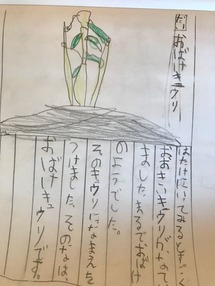 だい おばけキュウリ
はたけにいてみるとすごく
おおきいキュウリがなてい
ました。まるでおばけ
のようでした。
そのキウリになまえを
つけました。そのなは
おばけキュウリです。